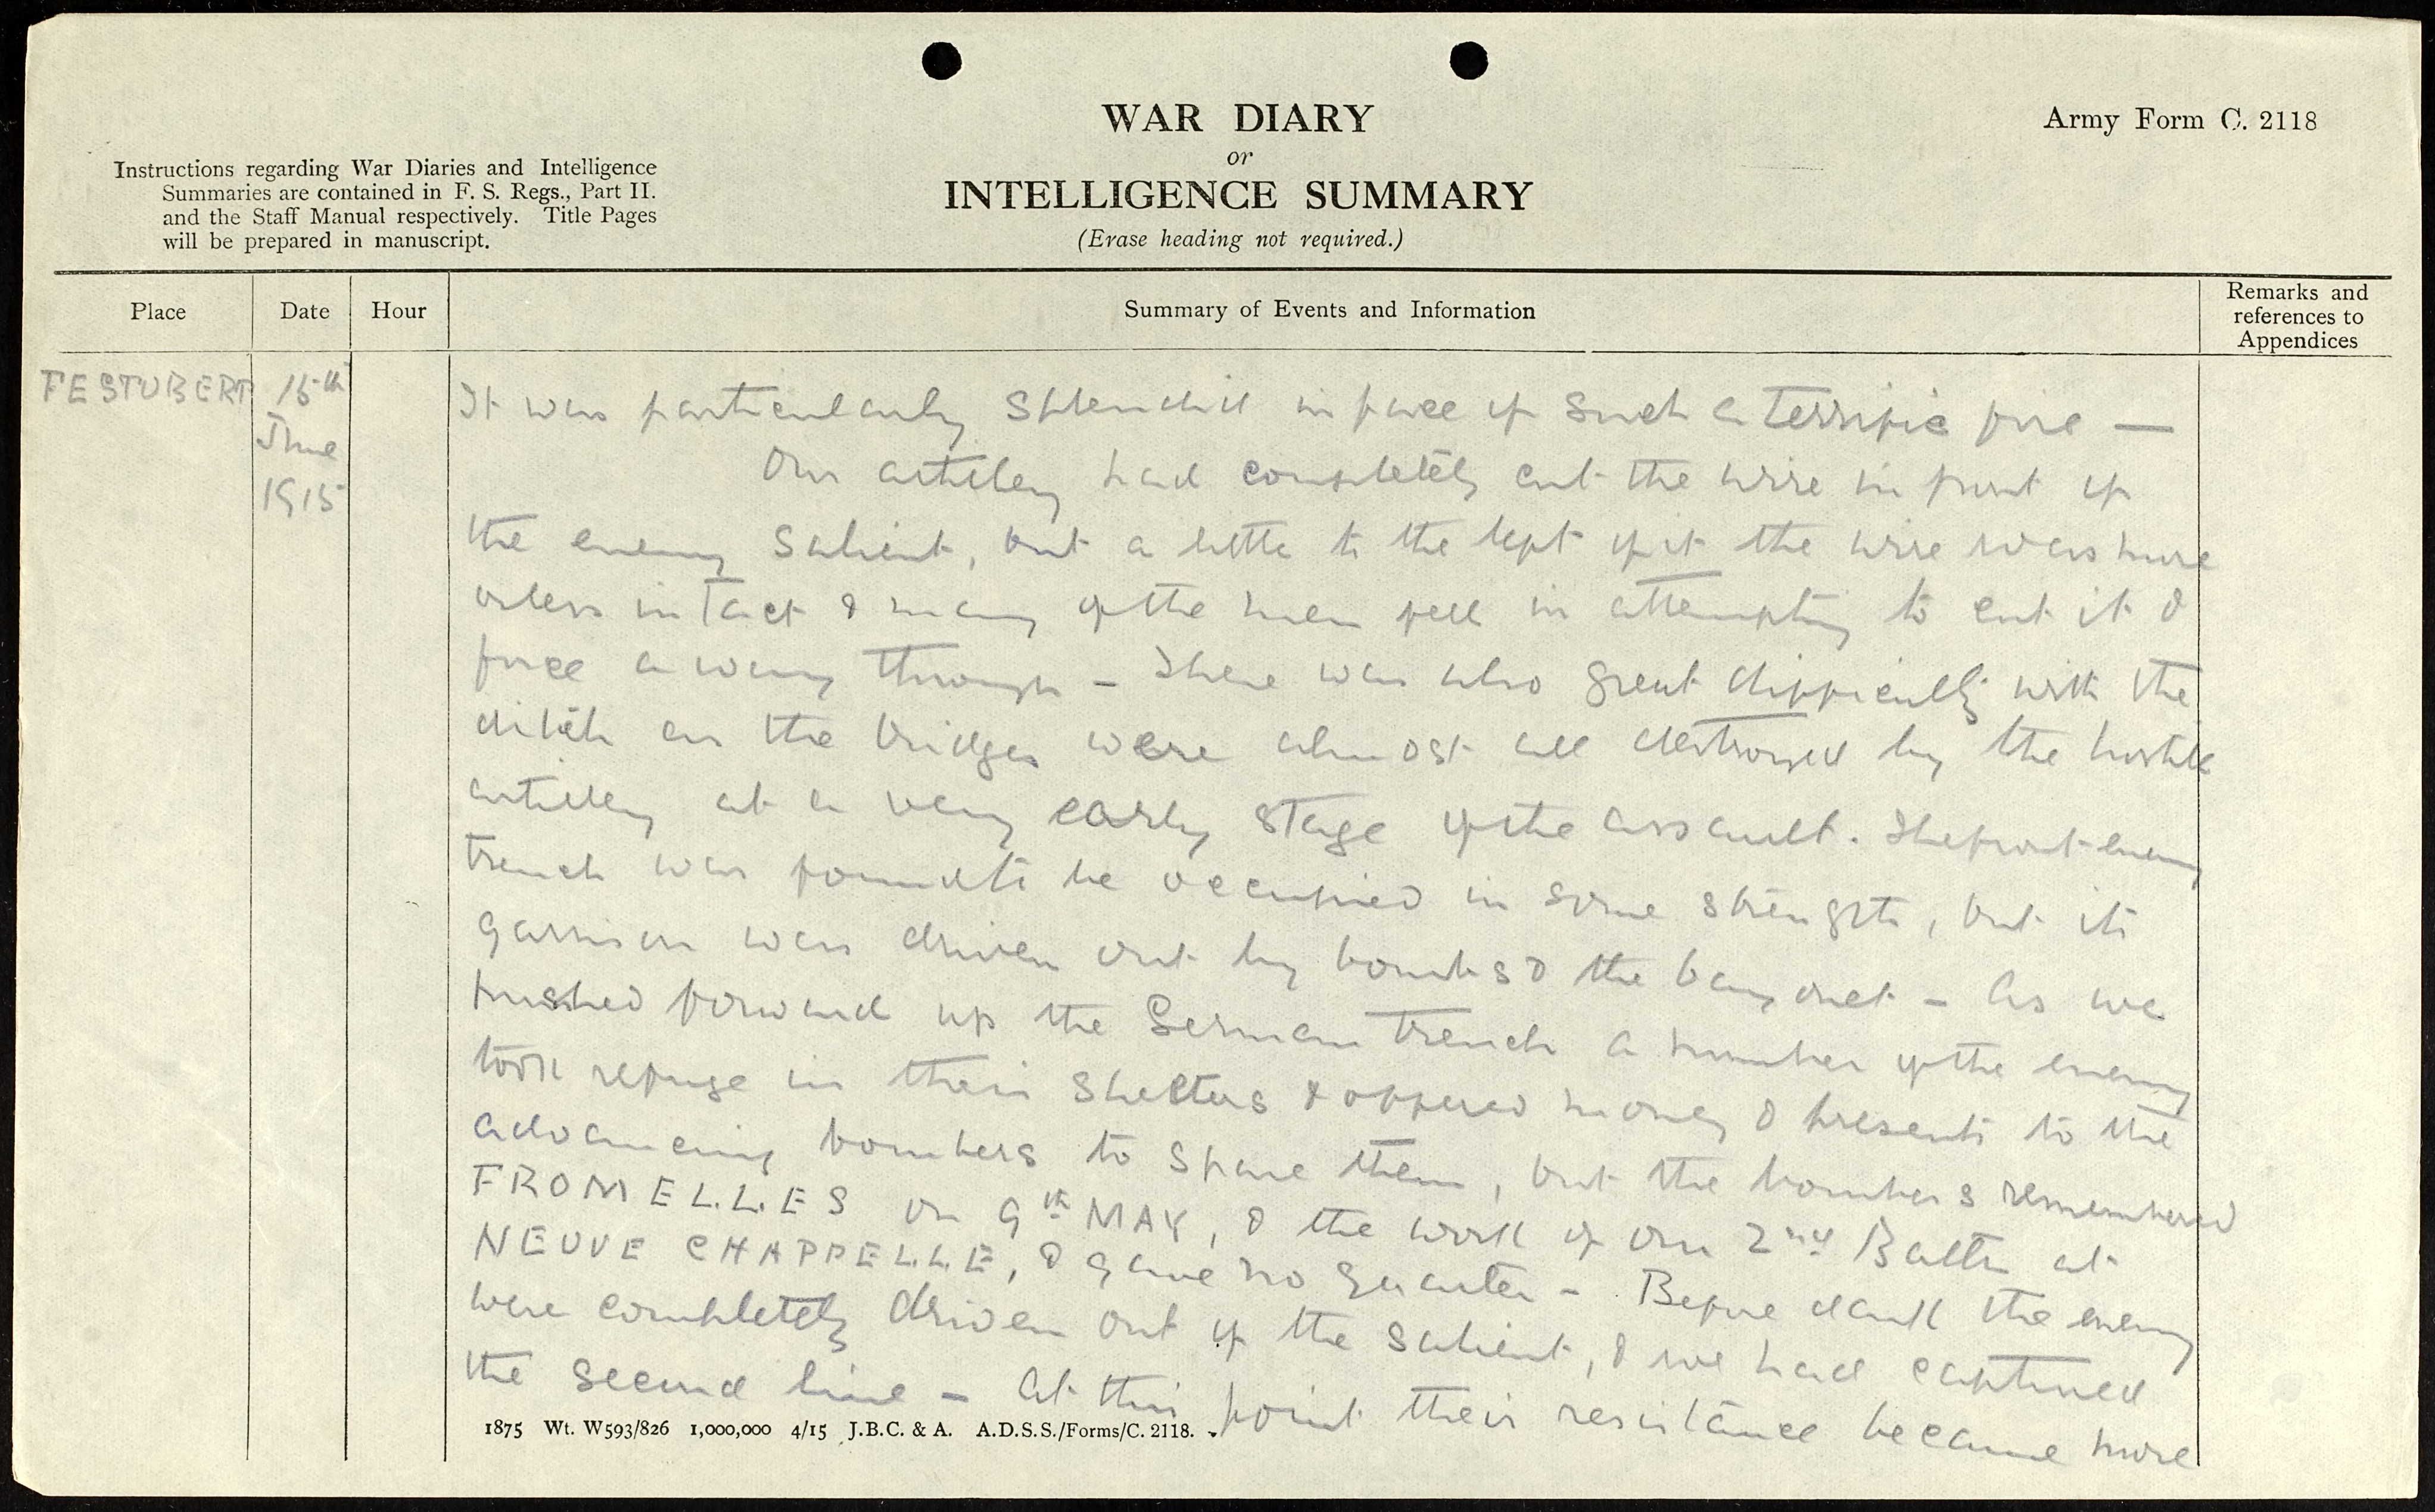 WAR DIARY
or
INTELLIGENCE SUMMARY
(Erase heading not required.)
Army Form C. 2118
Instructions regarding War Diaries and Intelligence
Summaries are contained in F. S. Regs., Part II.
and the Staff Manual respectively. Title Pages
will be prepared in manuscript.
Place
Date
Hour
Summary of Events and Information
Remarks and
references to
Appendices
FESTUBERT
15th
June
1915
It was particularly splendid in face of such a terrific fire —
Our artillery had completely cut the wire in front of
the enemy salient, but a little to the left of it the wire was more
or less intact & many of the men fell in attempting to cut it &
force a way through — There was also great difficulty with the
ditch as the bridges were almost all destroyed by the hostile
artillery at a very early stage of the assault. The front enemy
trench was found to be occupied in some strength, but its
garrison was driven out by bombs & the bayonet — As we
pushed forward up the German trench a number of the enemy
took refuge in their shelters & offered money & presents to the
advancing bombers to spare them, but the bombers remembered
FROMELLES on 9th MAY, & the work of our 2nd Battn at
NEUVE CHAPPELLE, & gave no quarter — Before dark the enemy
were completely driven out of the salient, & we had captured
the second line — At this point their resistance became more
1875 Wt. W593/826 1,000,000 4/15 J.B.C. & A. A.D.S.S./Forms/C. 2118.